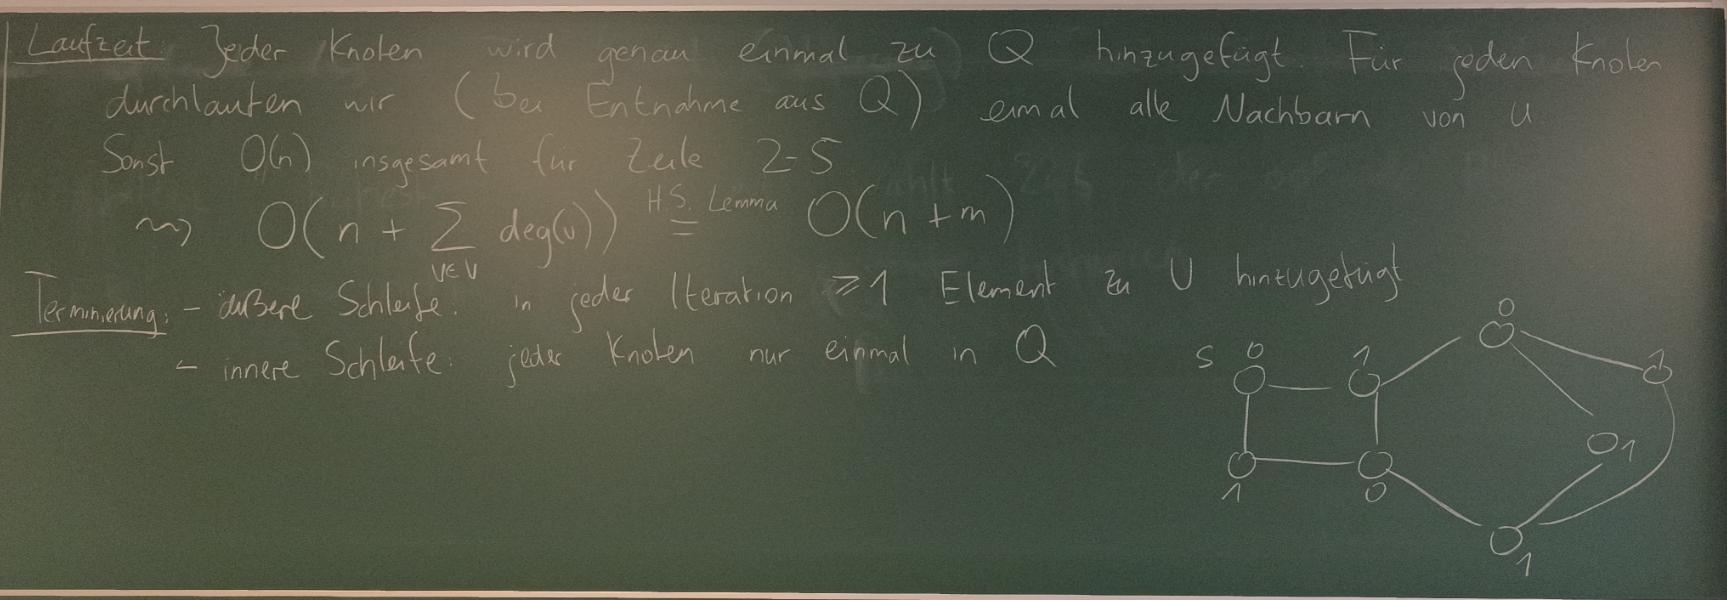 Laufzeit: Jeder Knoten wird genau einmal zu Q hinzugefügt. Für jeden Knoten
durchlaufen wir (bei Entnahme aus Q) einmal alle Nachbarn von u
Sonst O(n) insgesamt für Zeile 2-5
⇝ O(n + ∑ deg(v)) = O(n + m)
H.S. Lemma
v∈V
Terminierung: - äußere Schleife: in jeder Iteration ≥1 Element zu U hinzugefügt
- innere Schleife: jeder Knoten nur einmal in Q
0
S 0 1 1
1
1 0
1